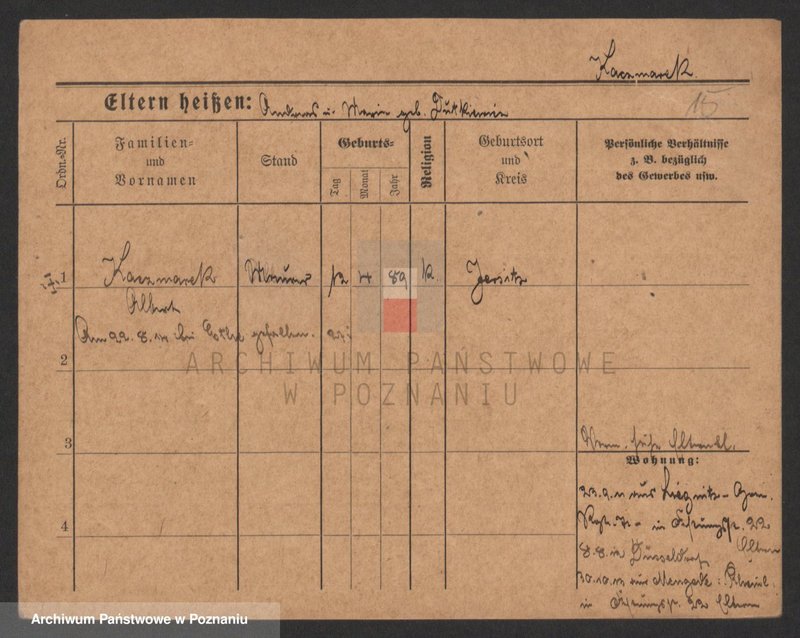 Kaczmarek.
15
Eltern heißen: Andreas u. Marie geb. Dutkiewicz
Ordn.-Nr.
Familien- und Vornamen
Stand
Geburts-
Tag
Monat
Jahr
Religion
Geburtsort und Kreis
Persönliche Verhältnisse z. B. bezüglich des Gewerbes usw.
1
Kaczmarek Maurer 12 4 89 k. Jersitz
Albert
Am 22. 8. 14 bei gefallen.
2
ARCHIWUM PAŃSTWOWE
W POZNANIU
3
Wohnung:
23.9.11 aus Liegnitz
4
in 22
8.8.12 Düsseldorf Eltern
30.10.13 aus
in 22 Eltern
Archiwum Państwowe w Poznaniu